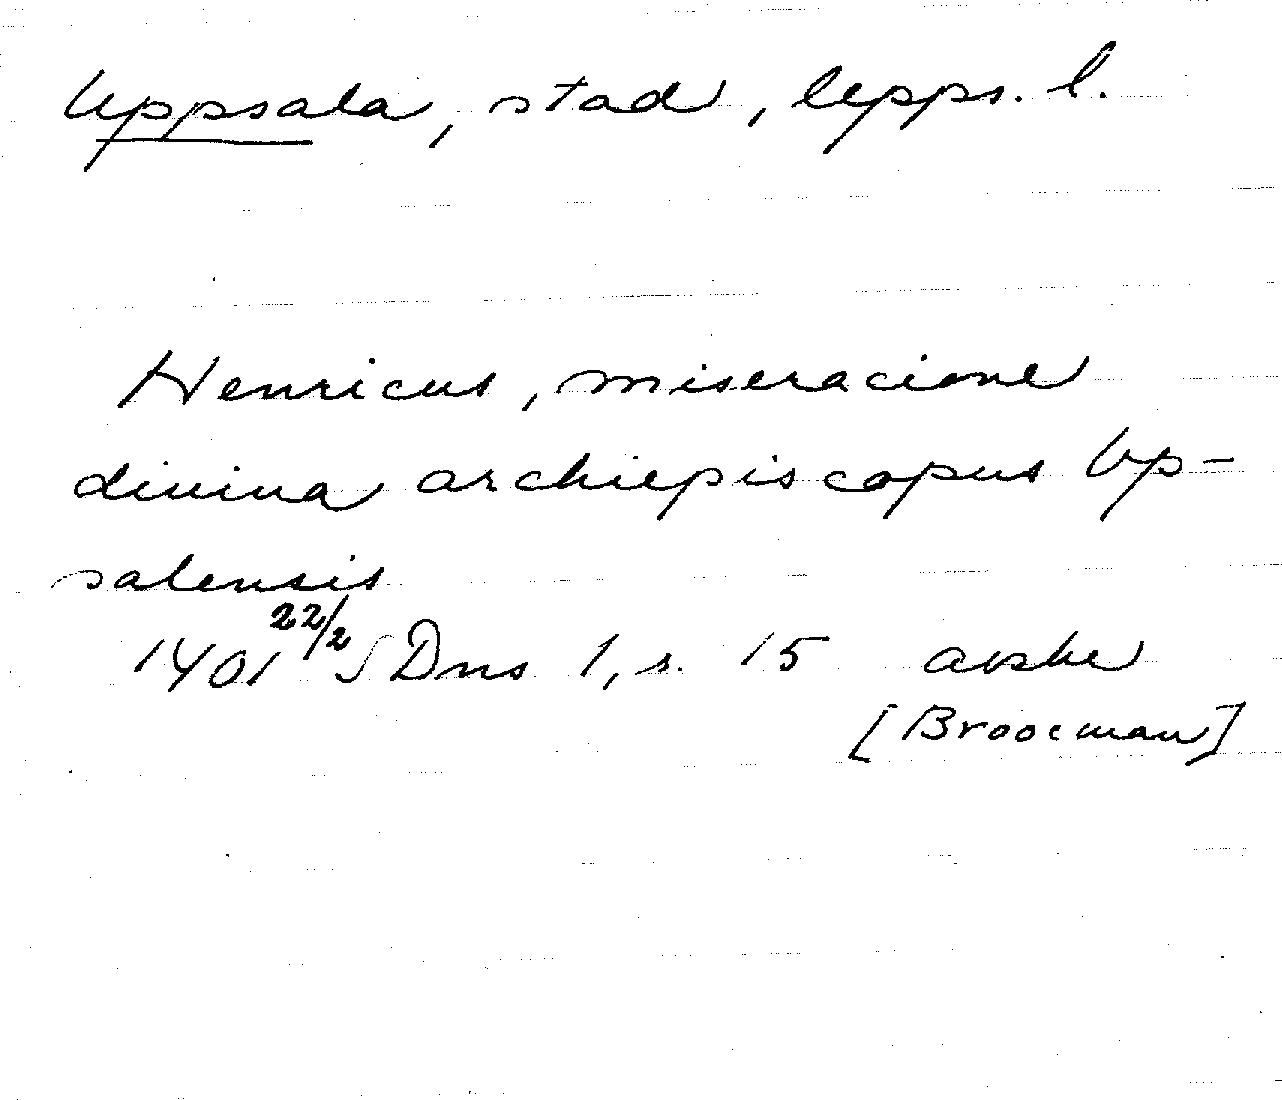 Uppsala, stad, Upps. l.
Henricus, miseracione
divina archiepiscopus Vp-
salensis
1401 22/2 SDns 1, s. 15 avskr
[Broocman]